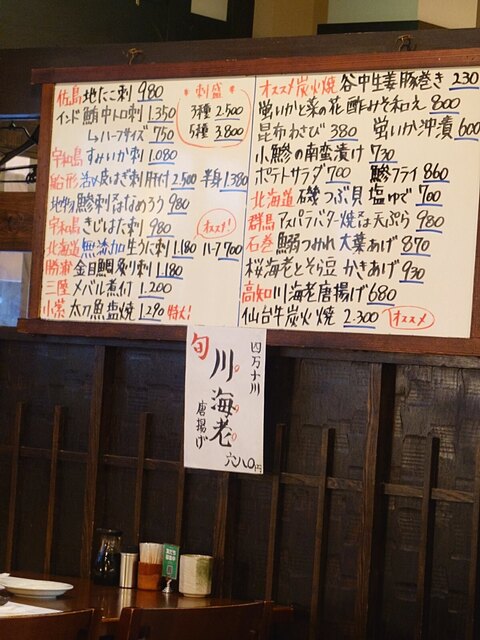 佐島 地だこ刺 980
インド鮪中トロ刺 1.350
↳ハーフサイズ 750
宇和島 すみいか刺 1.080
船形 活〆皮はぎ刺 肝付 2.500 半身 1.380
地物 鯵刺 or なめろう 980
宇和島 きじはた刺 980
オススメ!
北海道 無添加 生うに刺 1.180 ハーフ 700
勝浦 金目鯛炙り刺 1.180
三陸 メバル煮付 1.200
小柴 太刀魚塩焼 1.290 特大!
* 刺盛 *
3種 2.500
5種 3.800
オススメ炭火焼 谷中生姜豚巻き 230
蛍いかと菜の花 酢みそ和え 800
昆布わさび 380 蛍いか沖漬 600
小鯵の南蛮漬け 730
ポテトサラダ 700 鯵フライ 860
北海道 磯つぶ貝 塩ゆで 700
群馬 アスパラバター焼 or 天ぷら 980
石巻 鰯つみれ大葉あげ 870
桜海老とそら豆 かきあげ 930
高知 川海老唐揚げ 680
仙台牛炭火焼 2.300 オススメ
四万十川
旬 川海老
唐揚げ
六八〇円